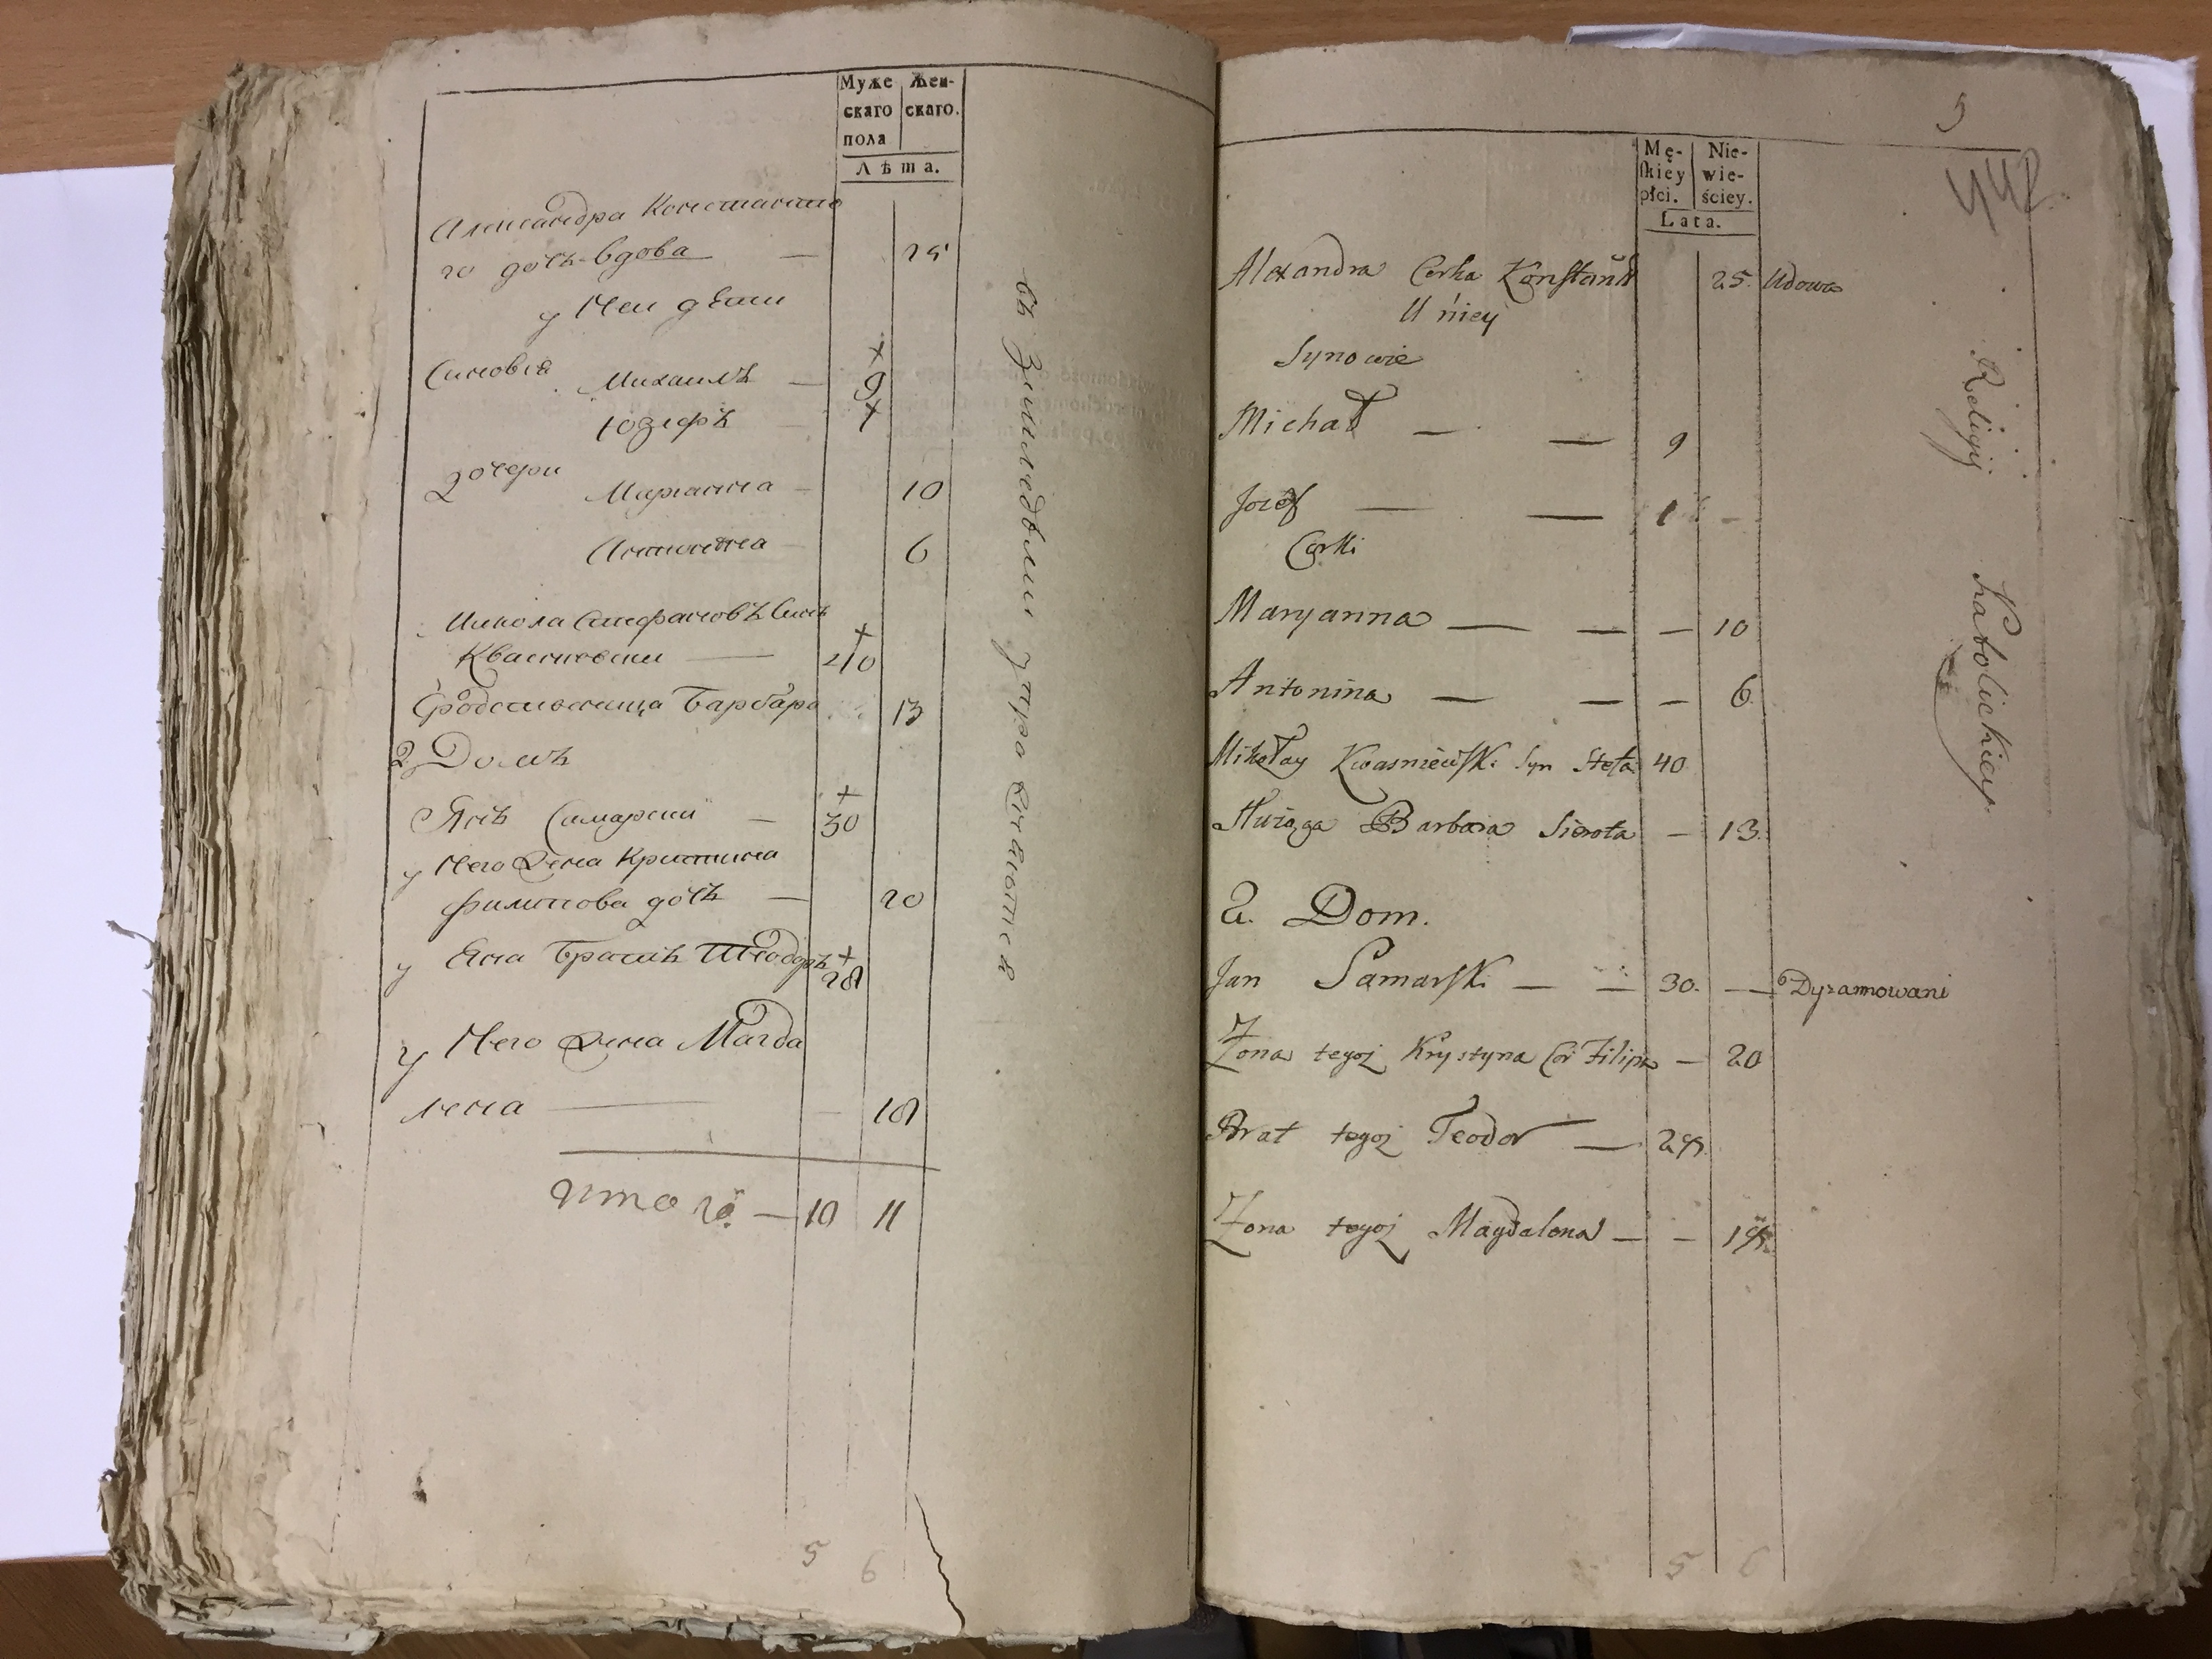 Муже
скаго
пола
Жен-
скаго.
Лѣта.
Александра Константино
го дочь вдова — 25
у Неи дѣти
Синовья Михаилъ — 9
Юзефъ — 1
Дочери Марианна — 10
Антонина — 6
Микола Стефановъ Синъ
Квасневски — 40
Сродственница Барбара 13
2 Домъ
Янъ Самарски — 30
у Него Жена Кристина
филипова дочь — 20
у Яна Братъ Теодоръ 28
у Него Жена Магда
лена — 18
Итого — 10 11
5 6
5
Mę-
skiey
płci.
Nie-
wie-
ściey.
Lata.
Alexandra Corka Konstant 25. Wdowa
U niey
Synowie
Michał — — 9
Jozef — — 1 -
Corki
Maryanna — — — 10
Antonina — — — 6
Mikołay Kwasniewski Syn Stefa 40
Sługa Barbara Sierota — 13.
2. Dom.
Jan Samarski — — 30. —
Zona tegoż Krystyna Cor Filipa — 20
Brat tegoż Teodor — 28
Zona tegoż Magdalena — — 18.
Religij Katolickiey
5 6